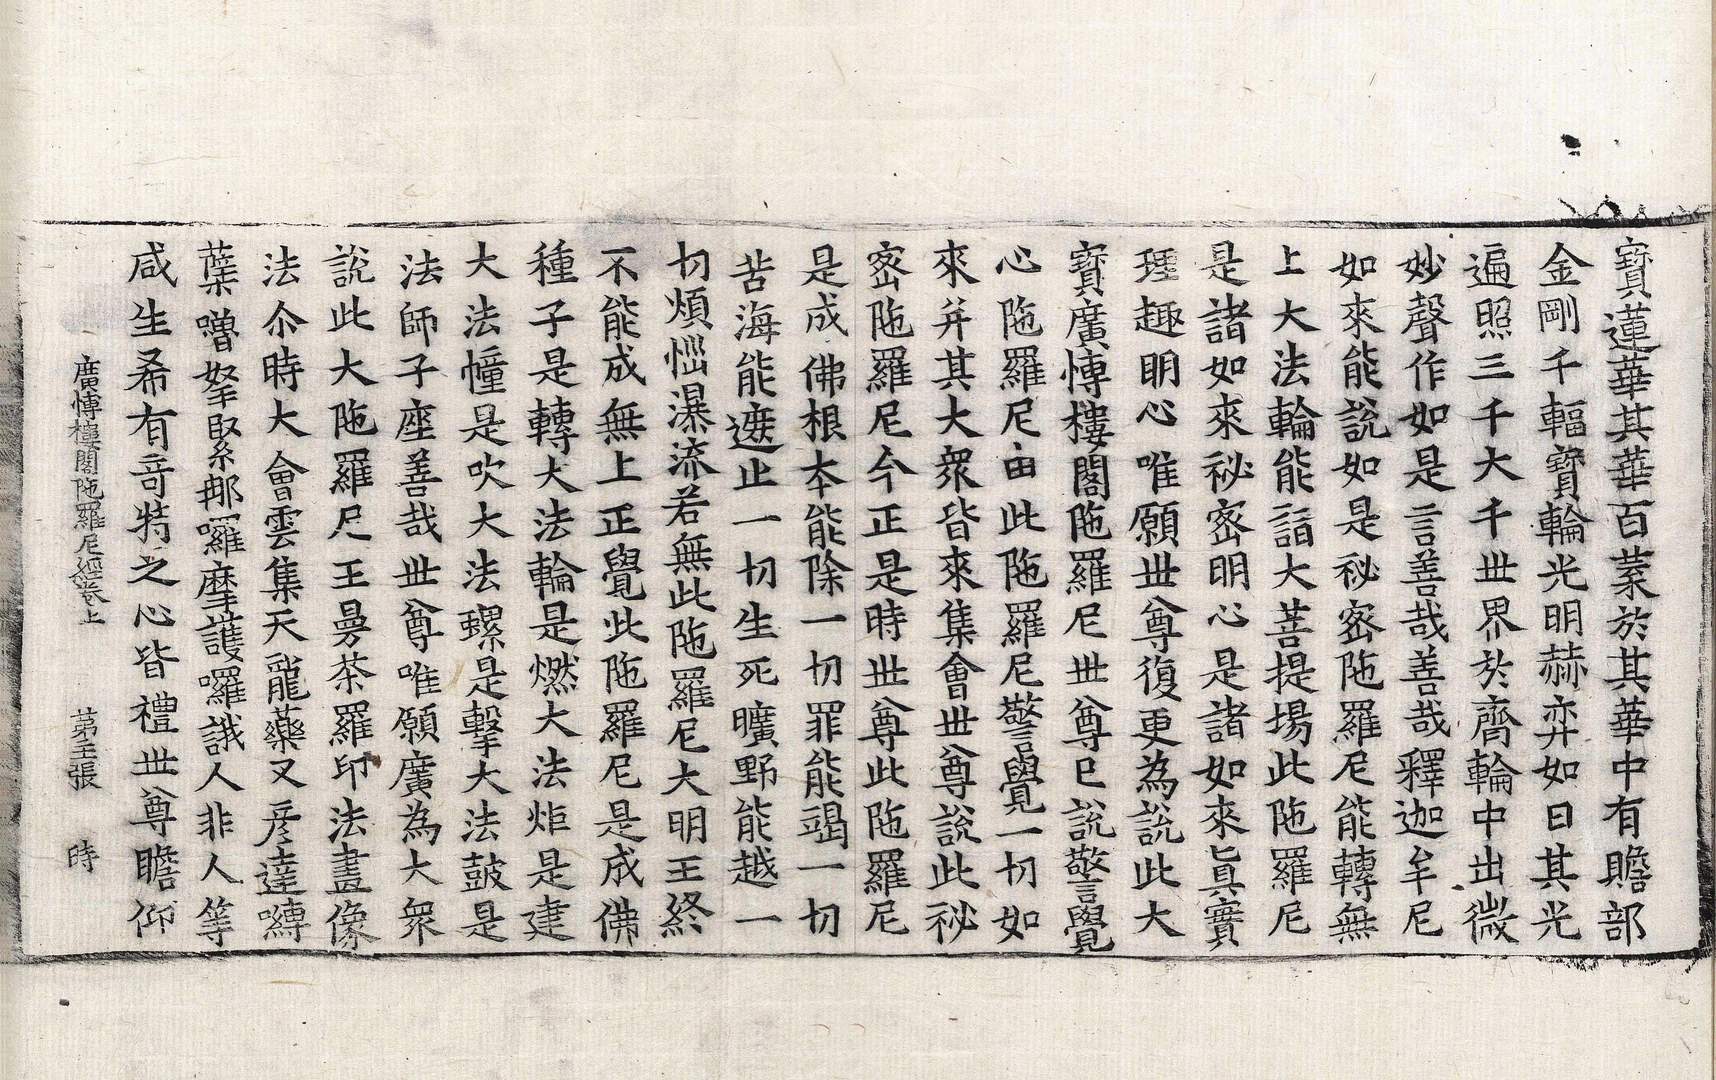 寳蓮華其華百葉於其華中有贍部
金剛千輻寳輪光明赫弈如日其光
遍照三千大千世界於齊輪中出微
妙聲作如是言善哉善哉釋迦牟尼
如來能說如是秘密陁羅尼能轉無
上大法輪能詣大菩提場此陁羅尼
是諸如來祕密明心是諸如來真實
理趣明心唯願世尊復更為說此大
寳廣愽樓閣陁羅尼世尊已說警覺
心陁羅尼由此陁羅尼警覺一切如
來并其大衆皆來集會世尊說此祕
密陁羅尼今正是時世尊此陁羅尼
是成佛根本能除一切罪能竭一切
苦海能遮止一切生死曠野能越一
切煩惱瀑流若無此陁羅尼大明王終
不能成無上正覺此陁羅尼是成佛
種子是轉大法輪是燃大法炬是建
大法幢是吹大法螺是擊大法鼓是
法師子座善哉世尊唯願廣為大衆
說此大陁羅尼王曼荼羅印法畫像
法尒時大會雲集天龍藥叉彥達嚩
蘖嚕拏緊那囉摩護囉誐人非人等
咸生希有奇特之心皆禮世尊瞻仰
廣愽樓閣陁羅尼經卷上 第五張 時